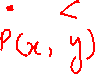 • <
P(x, y)